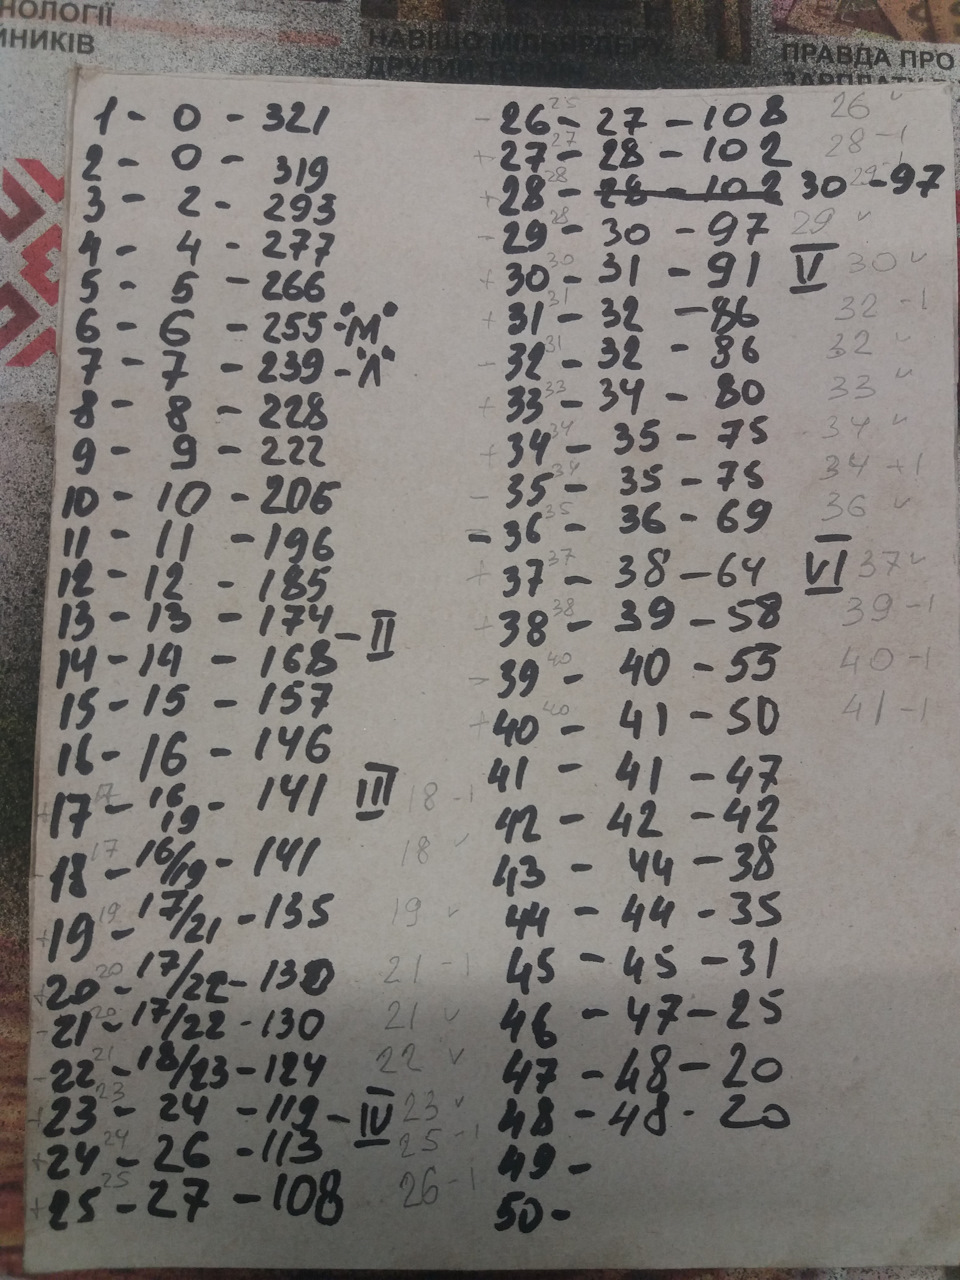 НОЛОГІЇ
ЙНИКІВ
НАВІЩО МІЛЬЯРДЕРУ
ПРАВДА ПРО
1 - 0 - 321
2 - 0 - 319
3 - 2 - 293
4 - 4 - 277
5 - 5 - 266
6 - 6 - 255 - "М"
7 - 7 - 239 - "Л"
8 - 8 - 228
9 - 9 - 222
10 - 10 - 206
11 - 11 - 196
12 - 12 - 185
13 - 13 - 174 - II
14 - 14 - 168
15 - 15 - 157
16 - 16 - 146
+ 17 17 - 16 19 - 141 III 18 -1
- 18 17 - 16/19 - 141 18 v
+ 19 19 - 17/21 - 135 19 v
+ 20 20 - 17/22 - 130 21 -1
- 21 20 - 17/22 - 130 21 v
- 22 21 - 18/23 - 124 22 v
+ 23 23 - 24 - 119 - IV 23 v
+ 24 24 - 26 - 113 25 -1
+ 25 25 - 27 - 108 26 -1
- 26 25 - 27 - 108 26 v
+ 27 27 - 28 - 102 28 -1
+ 28 28 - 28 - 102 30 29 - 97
- 29 28 - 30 - 97 29 v
+ 30 30 - 31 - 91 V 30 v
+ 31 31 - 32 - 86 32 -1
- 32 31 - 32 - 86 32 v
+ 33 33 - 34 - 80 33 v
+ 34 34 - 35 - 75 34 v
- 35 34 - 35 - 75 34 +1
- 36 35 - 36 - 69 36 v
+ 37 37 - 38 - 64 VI 37 v
+ 38 38 - 39 - 58 39 -1
- 39 40 - 40 - 55 40 -1
+ 40 40 - 41 - 50 41 -1
41 - 41 - 47
42 - 42 - 42
43 - 44 - 38
44 - 44 - 35
45 - 45 - 31
46 - 47 - 25
47 - 48 - 20
48 - 48 - 20
49 -
50 -